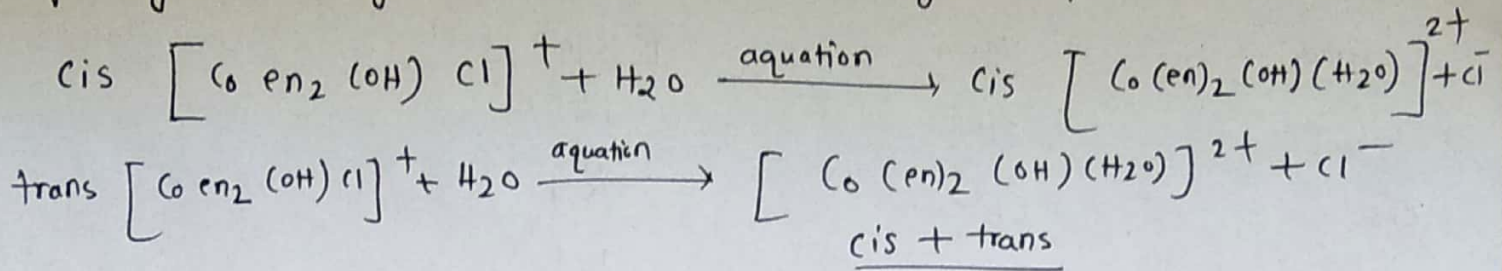 cis [Co en₂ (OH) Cl]⁺ + H₂O aquation → cis [Co (en)₂ (OH) (H₂O)]²⁺ + Cl⁻
trans [Co en₂ (OH) Cl]⁺ + H₂O aquation → [Co (en)₂ (OH) (H₂O)]²⁺ + Cl⁻
cis + trans